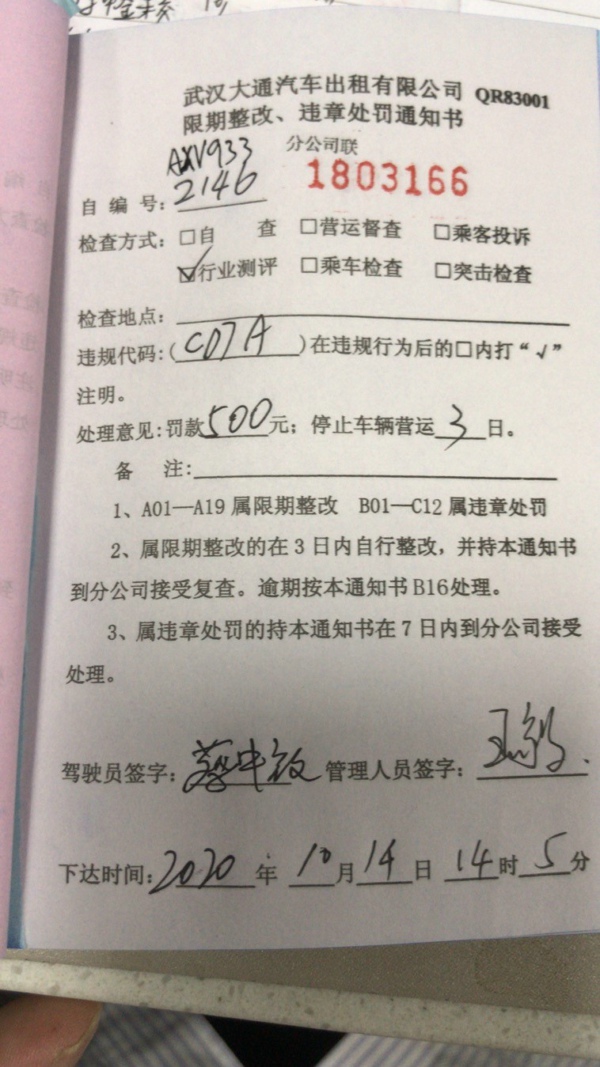 武汉大通汽车出租有限公司 QR83001
限期整改、违章处罚通知书
分公司联
AXV933
1803166
自编号: 2146
检查方式: □自 查 □营运督查 □乘客投诉
☑行业测评 □乘车检查 □突击检查
检查地点:
违规代码:( C07A )在违规行为后的□内打“√”
注明。
处理意见:罚款500元; 停止车辆营运3日。
备 注:
1、A01—A19属限期整改 B01—C12属违章处罚
2、属限期整改的在3日内自行整改,并持本通知书
到分公司接受复查。逾期按本通知书B16处理。
3、属违章处罚的持本通知书在7日内到分公司接受
处理。
驾驶员签字: 管理人员签字:
下达时间:2020年10月14日14时5分